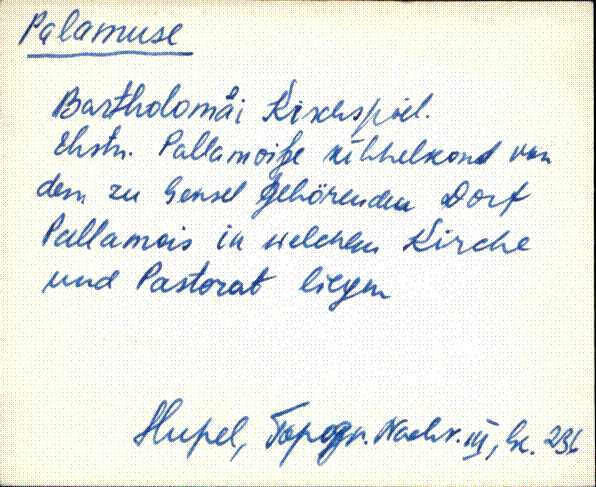 Palamuse
Bartholomäi Kirchspiel.
Ehstn. Pallamoisse kihhelkond von
dem zu Sensel gehörenden Dorf
Pallamois in welchem Kirche
und Pastorat liegen
Hupel, Topogr. Nachr. III, lk. 236